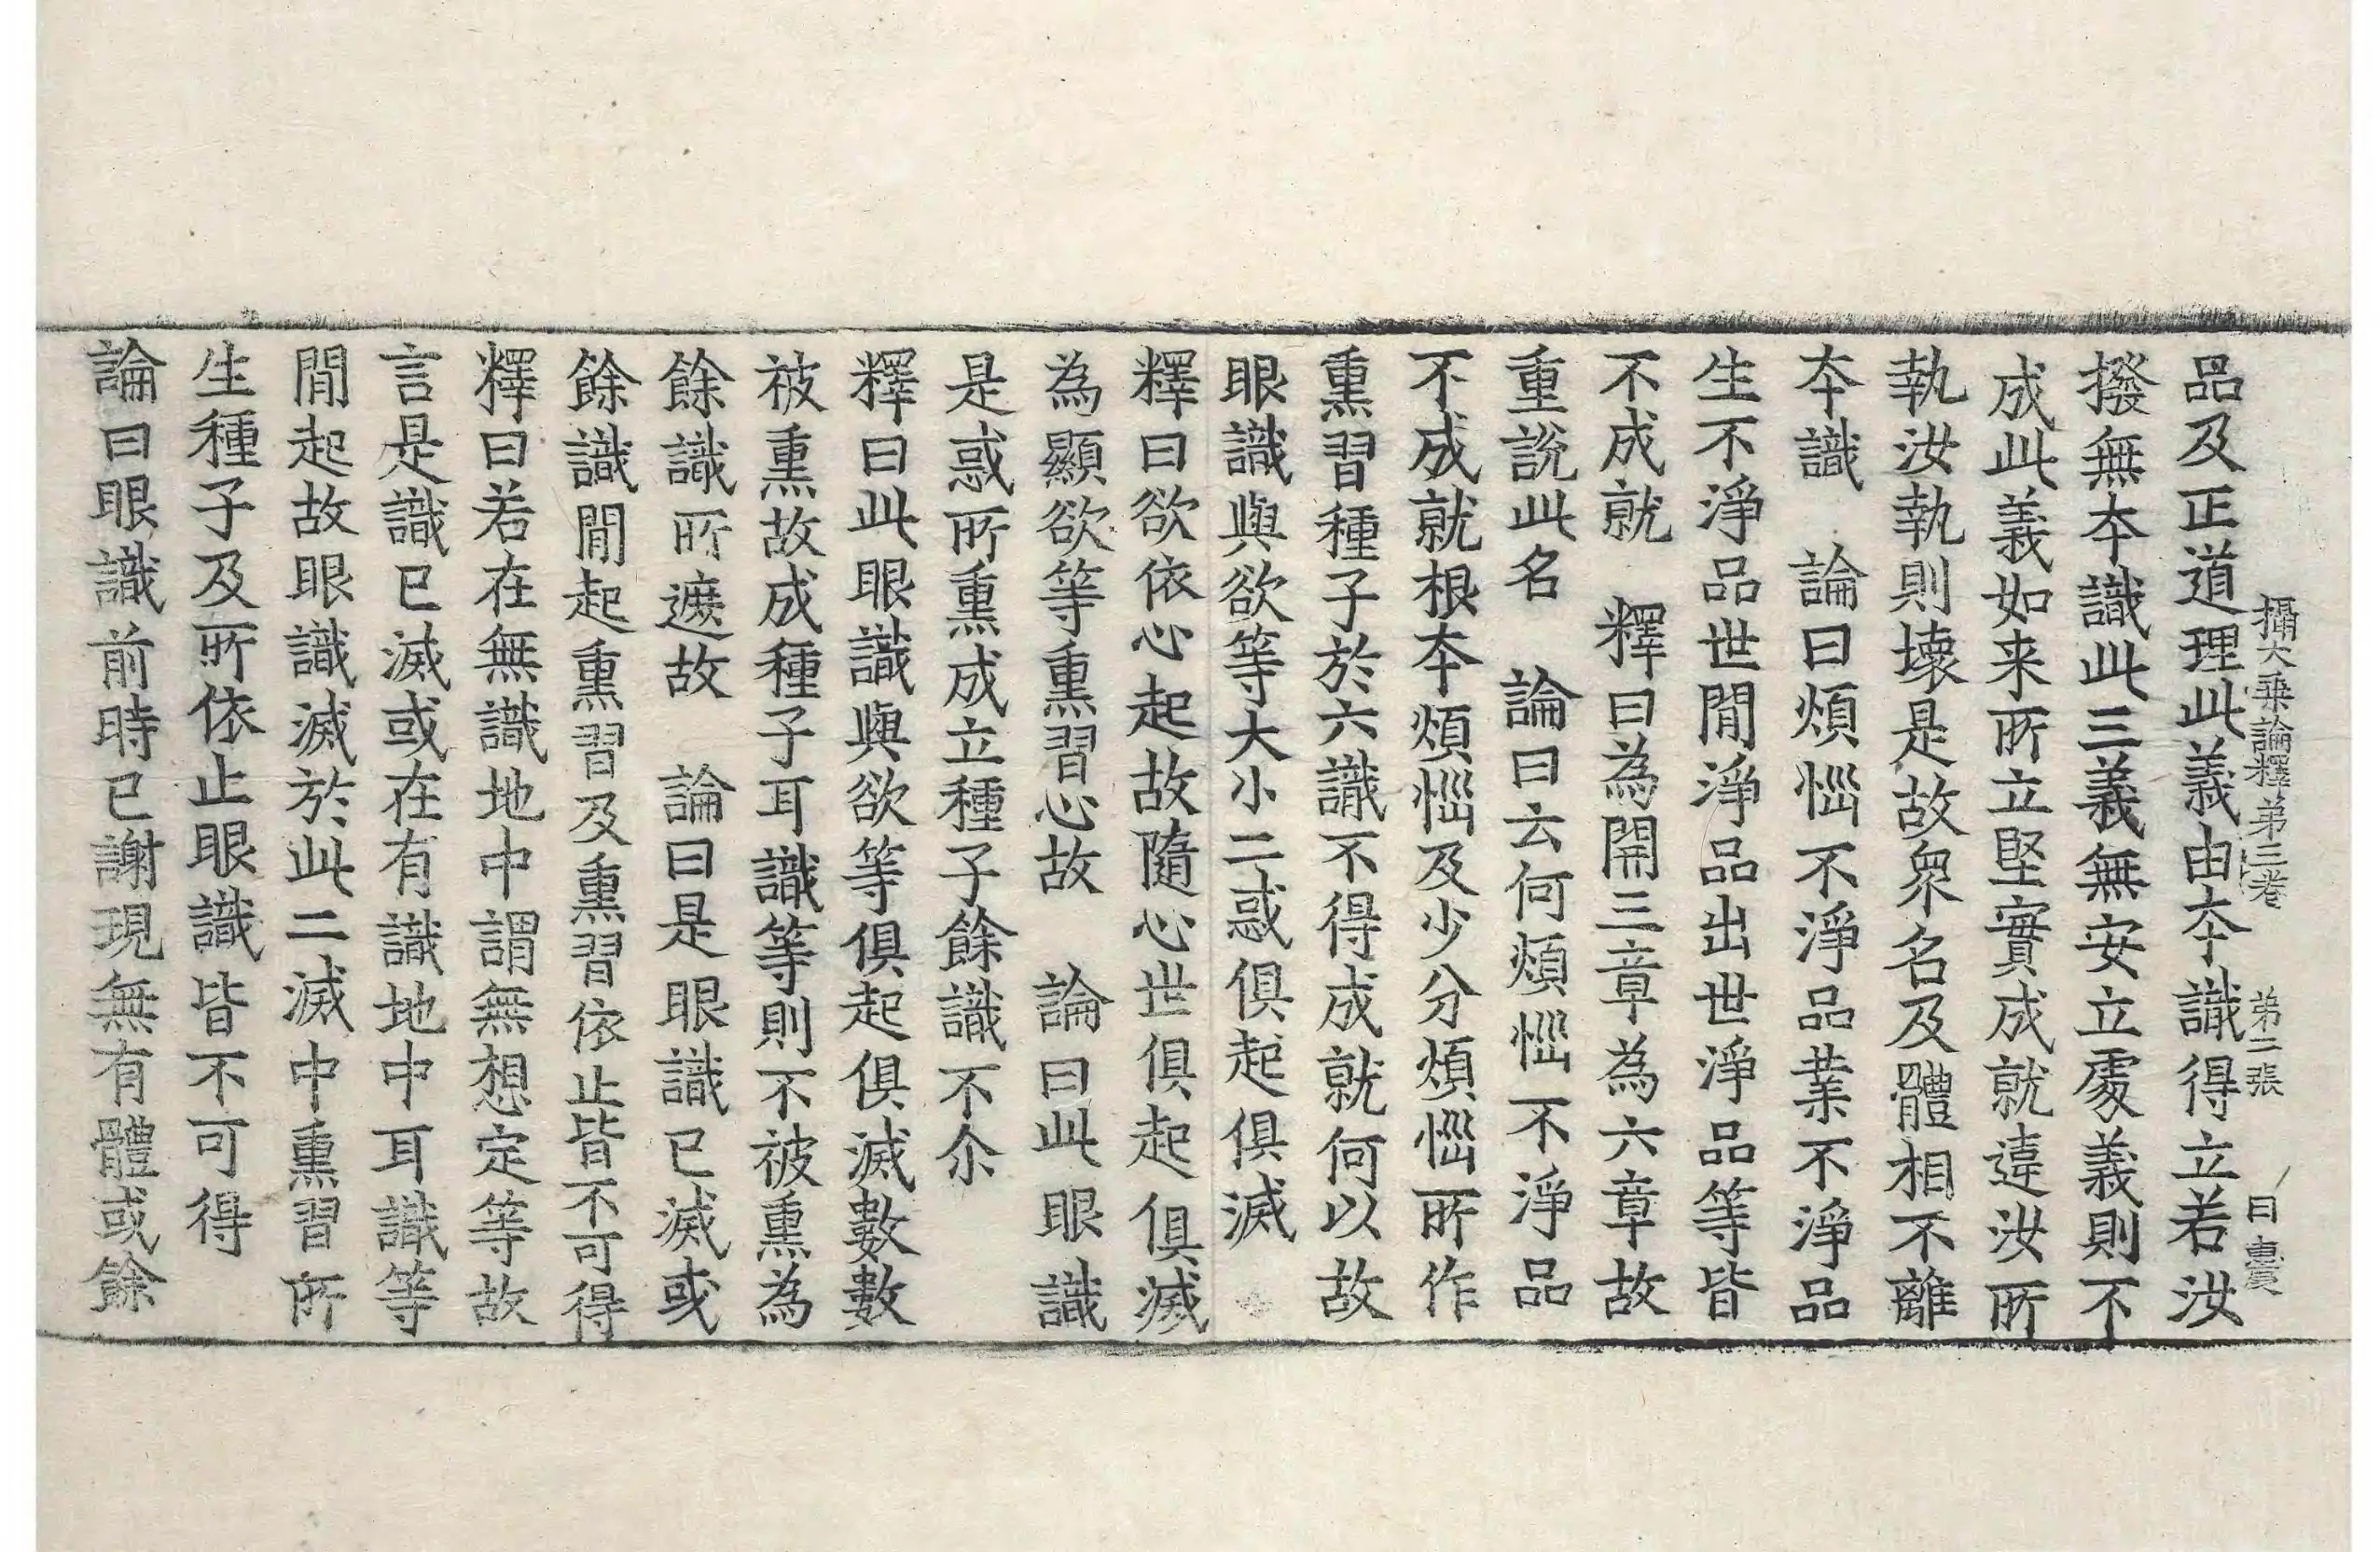 攝大乘論釋弟三卷　弟二張　曰
品及正道理此義由夲識得立若汝
撥無夲識此三義無安立處義則不
成此義如来所立堅實成就違汝所
執汝執則壞是故衆名及體相不離
夲識　論曰煩惱不淨品業不淨品
生不淨品世閒淨品出世淨品等皆
不成就　釋曰為開三章為六章故
重說此名　論曰云何煩惱不淨品
不成就根夲煩惱及少分煩惱所作
熏習種子於六識不得成就何以故
眼識與欲等大小二惑俱起俱滅
釋曰欲依心起故隨心世俱起俱滅
為顯欲等熏習心故　論曰此眼識
是惑所熏成立種子餘識不尒
釋曰此眼識與欲等俱起俱滅數數
被熏故成種子耳識等則不被熏為
餘識所遮故　論曰是眼識已滅或
餘識閒起熏習及熏習依止皆不可得
釋曰若在無識地中謂無想定等故
言是識已滅或在有識地中耳識等
閒起故眼識滅於此二滅中熏習所
生種子及所依止眼識皆不可得
論曰眼識前時已謝現無有體或餘